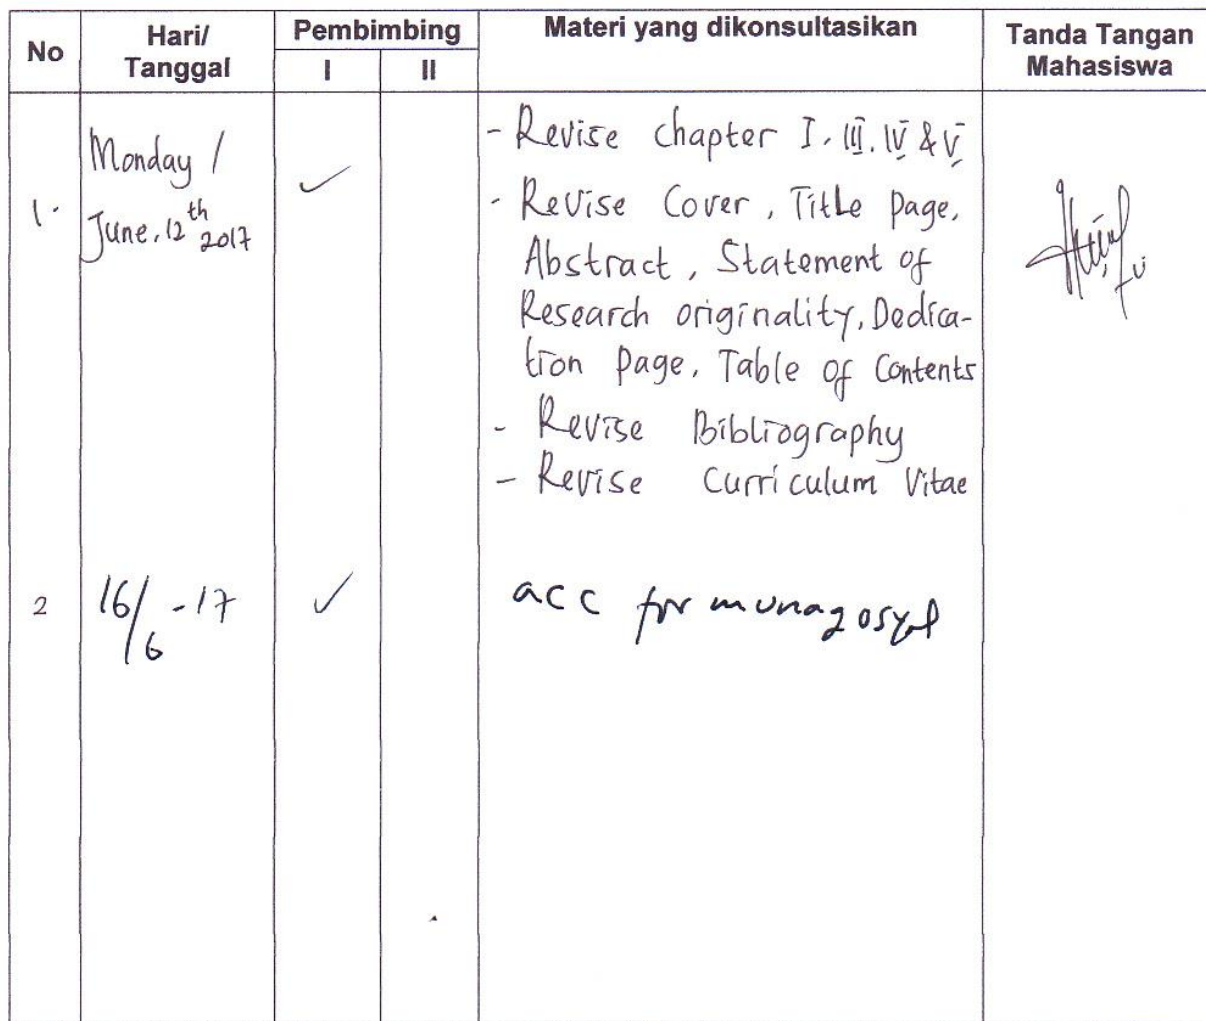 No Hari/ Tanggal Pembimbing Materi yang dikonsultasikan Tanda Tangan Mahasiswa
I II
1. Monday / June, 12th 2017
- Revise chapter I, III, IV & V
- Revise Cover, Title page,
Abstract, Statement of
Research originality, Dedica-
tion page, Table of Contents
- Revise Bibliography
- Revise Curriculum Vitae
2 16/6 -17 acc for munaqosyal